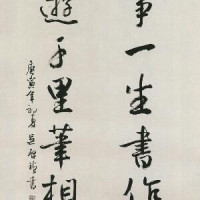 事一生書作
遊千里筆相
庚寅年初夏